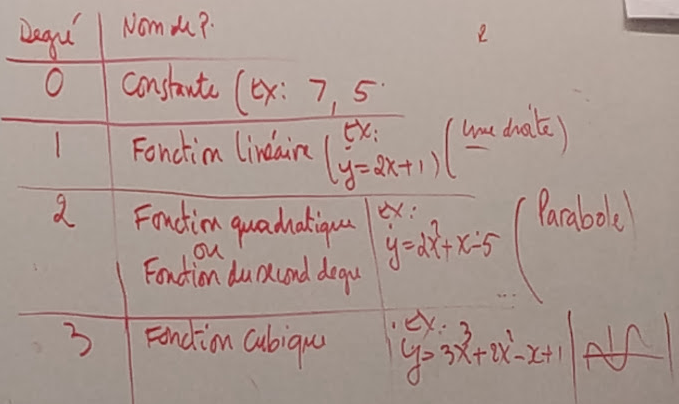 Degré Nom du P.
0 Constante (Ex: 7, 5
1 Fonction linéaire (Ex: y=2x+1) (une droite)
2 Fonction quadratique
ou
Fonction du second degu
Ex: y=2x²+x-5 (Parabole)
...
3 Fonction Cubique Ex: y=3x³+2x²-x+1